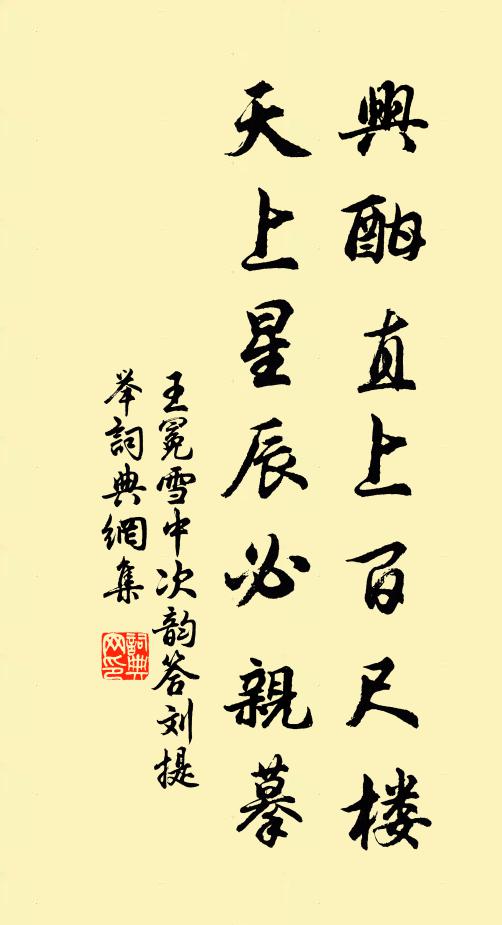 興酣直上百尺楼
天上星辰必親摹
王冕雪中次韵答刘提
举詞典網集
詞典网印